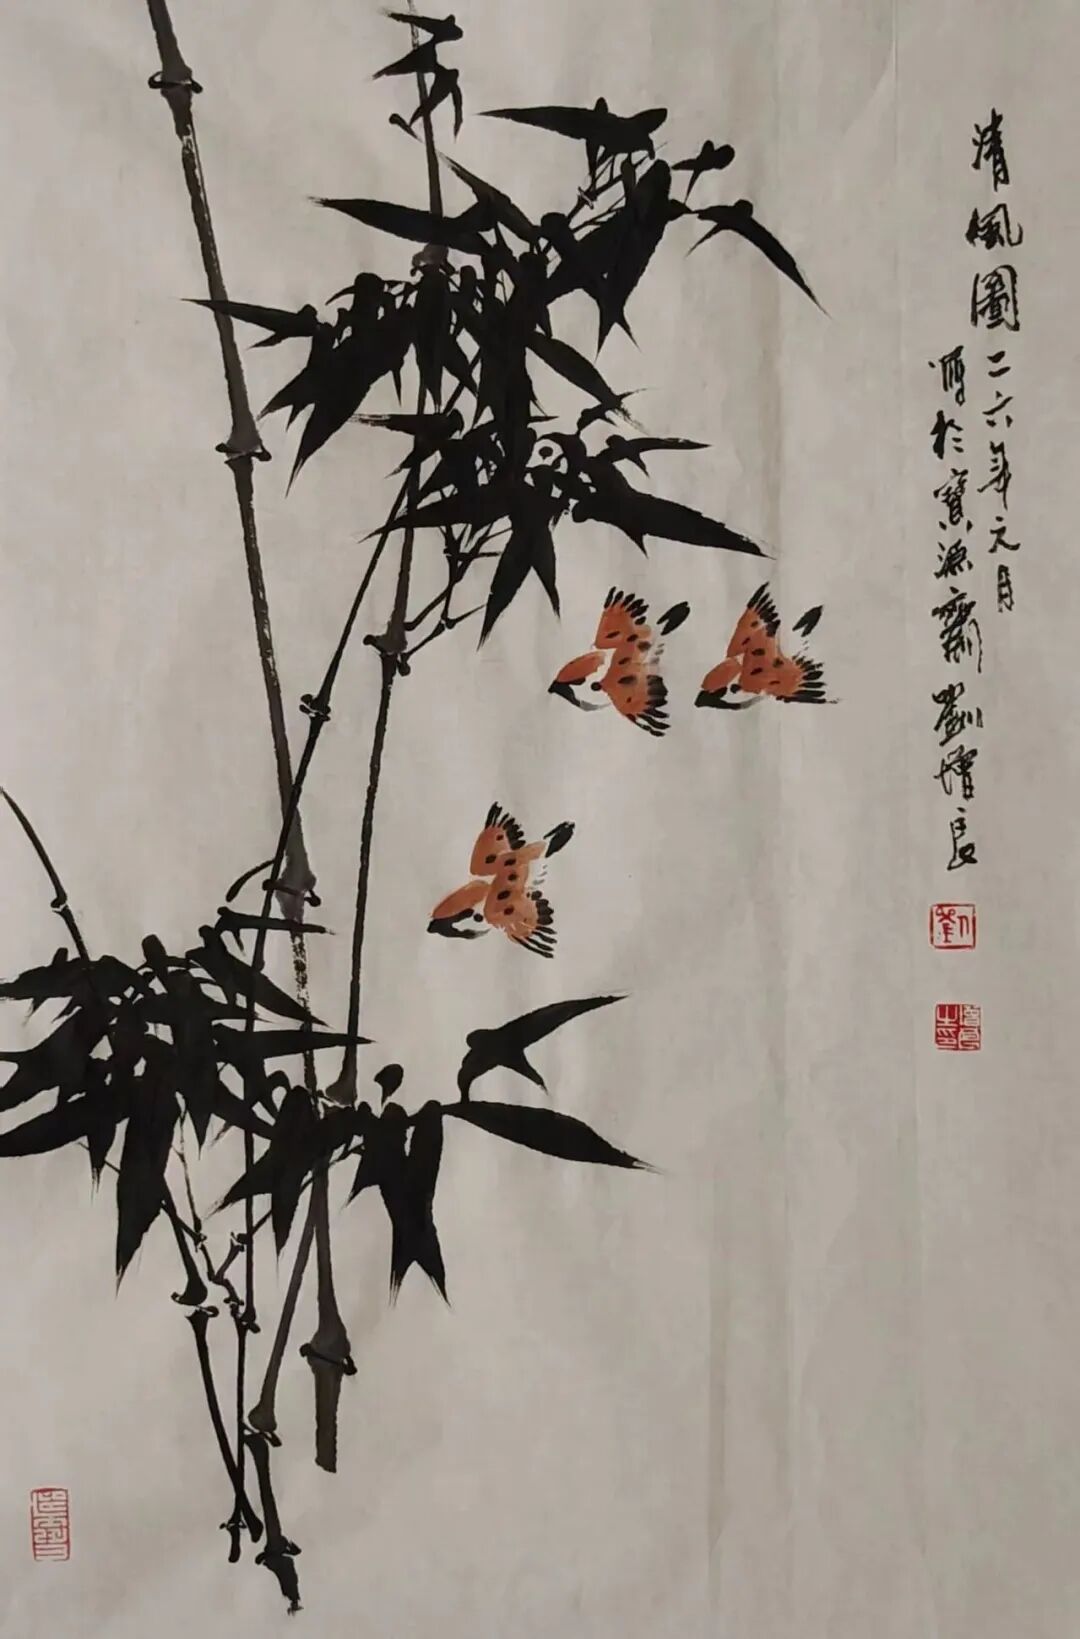 清風圖二六年元月
寫於寶源齋劉增良
劉